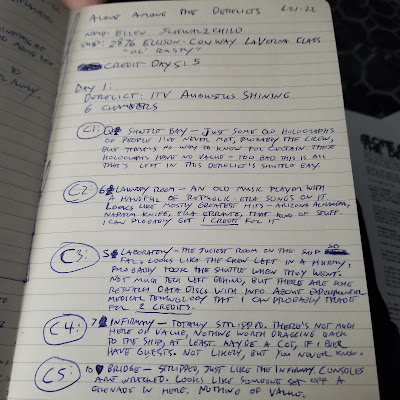 ALONE AMONG THE DERELICTS 6-21-22
NAME: ELLEN SCHWARZCHILD
SHIP: 2876 ELLISON-CONWAY LAVERNA CLASS
"OL' RUSTY"
CREDIT DAYS: 5
DAY 1:
DERELICT: ITV AUGUSTUS SHINING
6 CHAMBERS
C1: SHUTTLE BAY - JUST SOME OLD HOLOGRAPHS
OF PEOPLE I'VE NEVER MET, PROBABLY THE CREW,
BUT THERE'S NO WAY TO KNOW FOR CERTAIN. THESE
HOLOGRAPHS HAVE NO VALUE - TOO BAD THIS IS ALL
THAT'S LEFT IN THIS DERELICT'S SHUTTLE BAY.
C2: 6 LAUNDRY ROOM - AN OLD MUSIC PLAYER WITH
A HANDFUL OF REPUBLIC-ERA SONGS ON IT.
LOOKS LIKE MOSTLY GREATEST HITS - ARIZONA
NAPALM KNIFE, THAT KIND OF STUFF.
I CAN PROBABLY GET 1 CREDIT FOR IT
C3: 5 LABORATORY - THE JUICIEST ROOM ON THE SHIP SO
FAR. LOOKS LIKE THE CREW LEFT IN A HURRY,
PROBABLY TOOK THE SHUTTLE WHEN THEY WENT.
NOT MUCH TECH LEFT BEHIND, BUT THERE ARE SOME
RESEARCH DATA DISCS WITH INFO ABOUT EXPERIMENTAL
MEDICAL TECHNOLOGY THAT I CAN PROBABLY TRADE
FOR 2 CREDITS.
C4: 7 INFIRMARY - TOTALLY STRIPPED. THERE'S NOT MUCH
HERE OF VALUE, NOTHING WORTH DRAGGING BACK
TO THE SHIP, AT LEAST. MAYBE A COT, IF I EVER
HAVE GUESTS. NOT LIKELY, BUT YOU NEVER KNOW.
C5: 10 BRIDGE - STRIPPED, JUST LIKE THE INFIRMARY. CONSOLES
ARE WRECKED. LOOKS LIKE SOMEONE SET OFF A
GRENADE IN HERE. NOTHING OF VALUE.